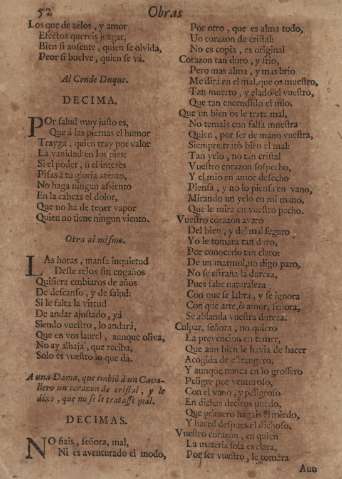 52 Obras
Los que de zelos, y amor
Efectos quereis juzgar,
Bien si ausente, quien se olvida,
Peor si buelve, quien se va.
Al Conde Duque.
DECIMA.
POr salud muy justo es,
Que à las piernas el humor
Trayga, quien tray por valor
La vanidad en los pies:
Si el poder, si el interès
Pisas à tu gloria atento,
No haga ningun assiento
En la cabeça el dolor,
Que no ha de tener vapor
Quien no tiene ningun viento.
Otra al mismo.
LAs horas, mansa inquietud
Deste relox sin engaños
Quisiera embiaros de años
De descanso, y de salud:
Si le falta la virtud
De andar ajustado, yà
Siendo vuestro, lo andarà,
Que en vos laurel, aunque oliva,
No ay alhaja, que reciba,
Solo es vuestro lo que dà.
A una Dama, que embiò à un Cavallero
un coraçon de cristal, y le
dixo, que no se le tratasse mal.
DECIMAS.
NO fiais, señora, mal,
Ni es aventurado el modo,
Por otro, que es alma todo,
Un corazon de cristal:
No es copia, es original
Corazon tan duro, y frio,
Pero mas alma, y mas brio
Me dirà en el mal, que os muestro,
Tan muerto, y elado el vuestro,
Que tan encendido el mio.
Que un bien os le trate mal,
No temais con falsa muestra
Quien, por ser de mano vuestra,
Siempre tratò bien el mal:
Tan yelo, no tan cristal
Vuestro corazon sospecho,
Y el mio en amor deshecho
Piensa, y no lo piensa en vano,
Mirando un yelo en mi mano,
Que le mira en vuestro pecho.
Vuestro corazon avaro
Del bien, y del mal seguro
Yo le tomàra tan duro,
Por conocerlo tan claro:
De un marmol, no digo paro,
No se estraña la dureza,
Pues sabe naturaleza
Con que se labra, y se ignora
Con que arte, ò amor, señora,
Se ablanda vuestra dureza.
Culpar, señora, no quiero
La prevencion en temer,
Que aun bien le havia de hacer
Acogida de estrangero:
Y aunque nunca en lo grossero
Peligre por venturoso,
Con el vano, y peligroso
En dichas dichòs medo,
Que primero hagais el miedo,
Y haced despues el dichoso.
Vuestro corazon, en quien
La materia sola es clara,
Por ser vuestro, le tomàra
Aun